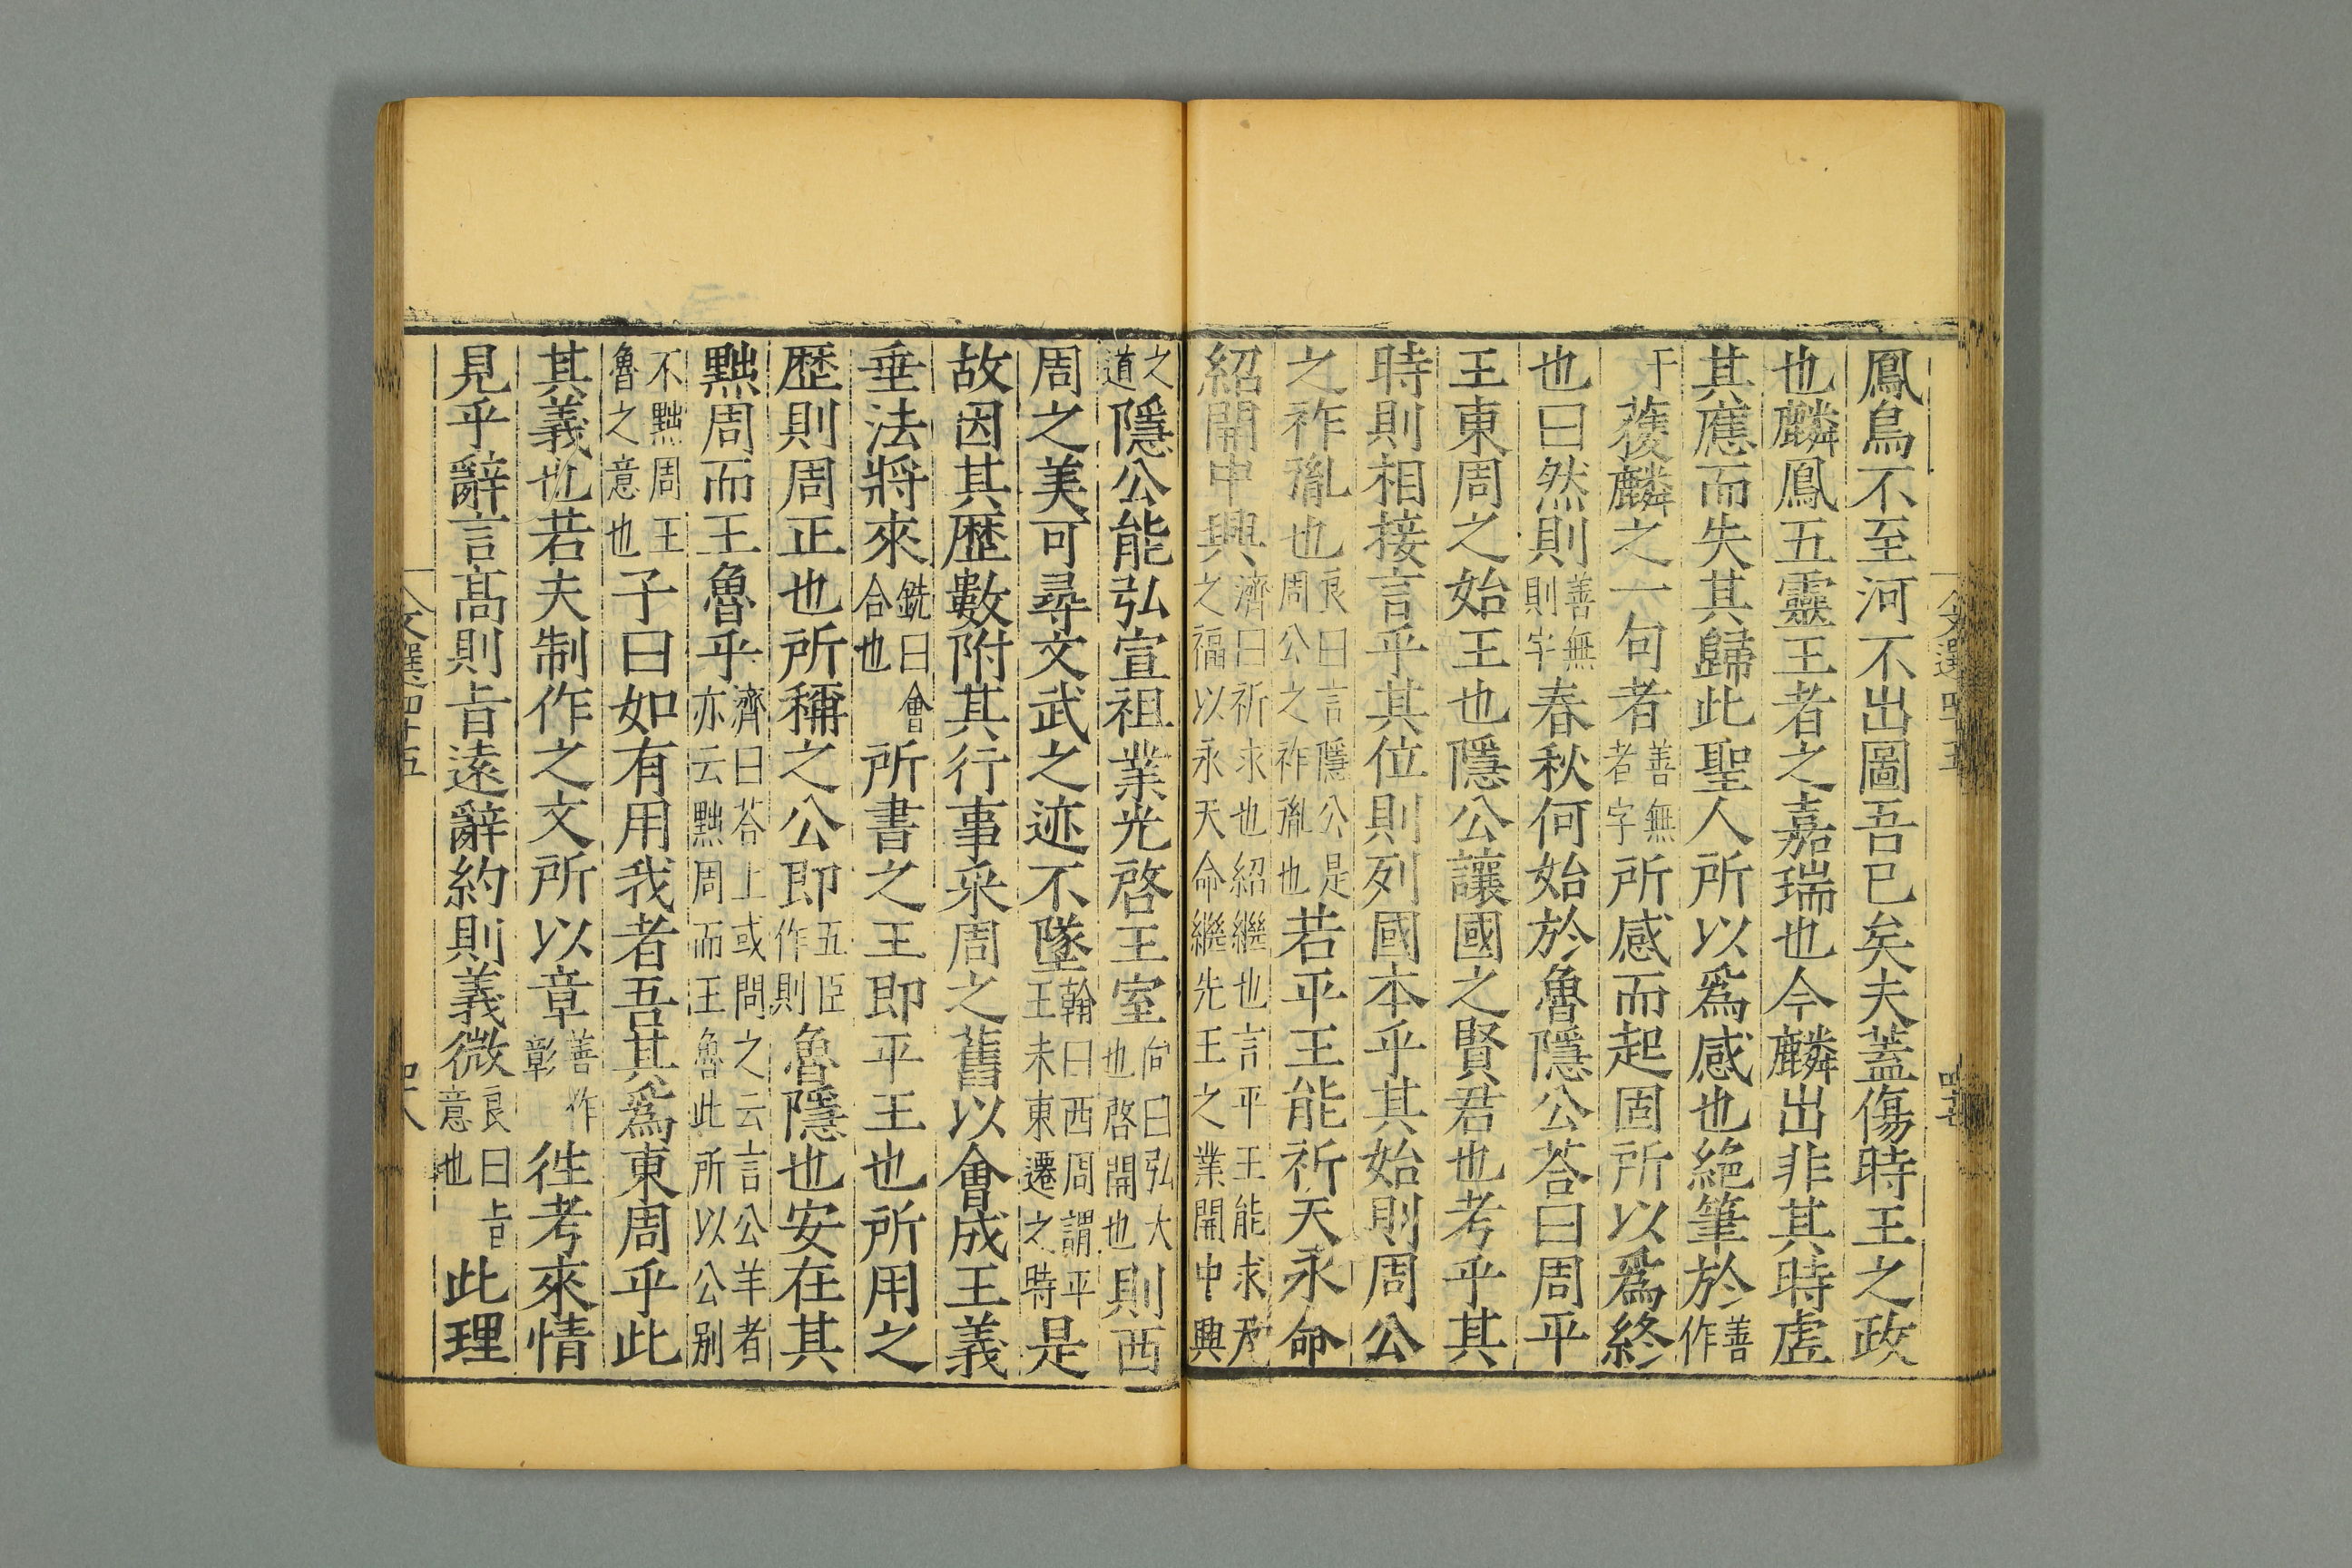 鳳鳥不至河不出圖吾已矣夫蓋傷時王之政
也麟鳳五靈王者之嘉瑞也今麟出非其時虛
其應而失其歸此聖人所以爲感也絶筆於善作
于獲麟之一句者善無者字所感而起固所以爲終
也曰然則善無則字春秋何始於魯隱公荅曰周平
王東周之始王也隱公讓國之賢君也考乎其
時則相接言乎其位則列國本乎其始則周公
之祚胤也良曰言隱公是周公之祚胤也若平王能祈天永命
紹開中興濟曰祈求也紹繼也言平王能求天之福以永天命繼先王之業開中興
之道隱公能弘宣祖業光啓王室向曰弘大也啓開也則西
周之美可尋文武之迹不墜翰曰西周謂平王未東遷之時是
故因其歷數附其行事采周之舊以會成王義
垂法將來銑曰會合也所書之王即平王也所用之
歷則周正也所稱之公即五臣作則魯隱也安在其
黜周而王魯乎濟曰荅上或問之云言公羊者亦云黜周而王魯此所以公别
不黜周王魯之意也子曰如有用我者吾其爲東周乎此
其義也若夫制作之文所以章善作彰徃考來情
見乎辭言髙則旨遠辭約則義微良曰旨意也此理
文選四十五